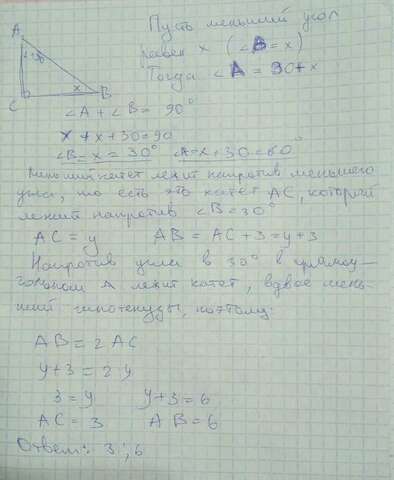 Пусть меньший угол
равен x (∠B = x)
Тогда ∠A = 30 + x
A
x+30
x
C
B
∠A + ∠B = 90°
x + x + 30 = 90
∠B = x = 30° ∠A = x + 30 = 60°
Меньший катет лежит напротив меньшего
угла, то есть это катет AC, который
лежит напротив ∠B = 30°
AC = y AB = AC + 3 = y + 3
Напротив угла в 30° в прямоу-
гольном Δ лежит катет, вдвое мень-
ший гипотенузы, поэтому:
AB = 2 AC
y + 3 = 2y
3 = y y + 3 = 6
AC = 3 AB = 6
Ответ: 3; 6